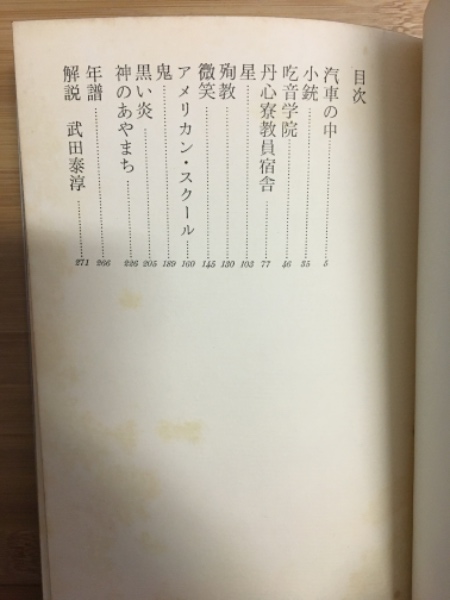 目次
汽車の中……5
小銃……35
吃音学院……46
丹心寮教員宿舎……77
星……103
殉教……130
微笑……145
アメリカン・スクール……160
鬼……189
黒い炎……205
神のあやまち……226
年譜……266
解説 武田泰淳……271